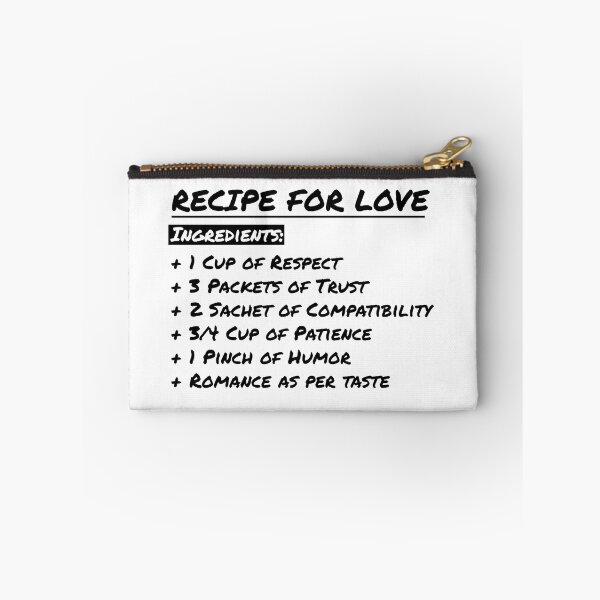 RECIPE FOR LOVE
INGREDIENTS:
+ 1 CUP OF RESPECT
+ 3 PACKETS OF TRUST
+ 2 SACHET OF COMPATIBILITY
+ 3/4 CUP OF PATIENCE
+ 1 PINCH OF HUMOR
+ ROMANCE AS PER TASTE